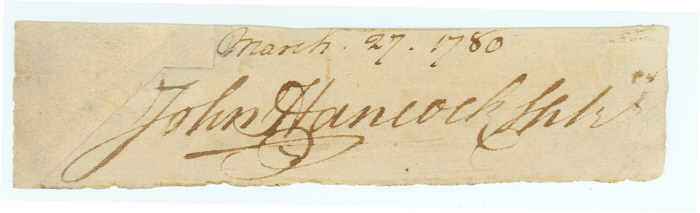 March. 27. 1780
John Hancock Spkr